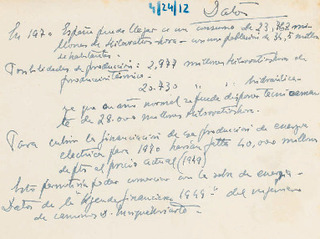 4/24/12
Datos
En 1970 España puede llegar a un consumo de 23,363 mi-
llones de kilovatios hora - con una población de 34,5 millones
de habitantes.
Posibilidades de producción: 2,977 millones kilovatios hora de
producción térmica
20.730 " " hidráulica
ya que en año normal se puede disponer
te de 28.000 millones kilovatios hora.
Para cubrir la financiación de esa producción de energía
electrica para 1970 harían falta 40,000 millones
de pts al precio actual (1949)
Esto permitiría poder comerciar con la sobra de energía -
Datos de la "Agenda financiera 1949" del ingeniero
de caminos D.